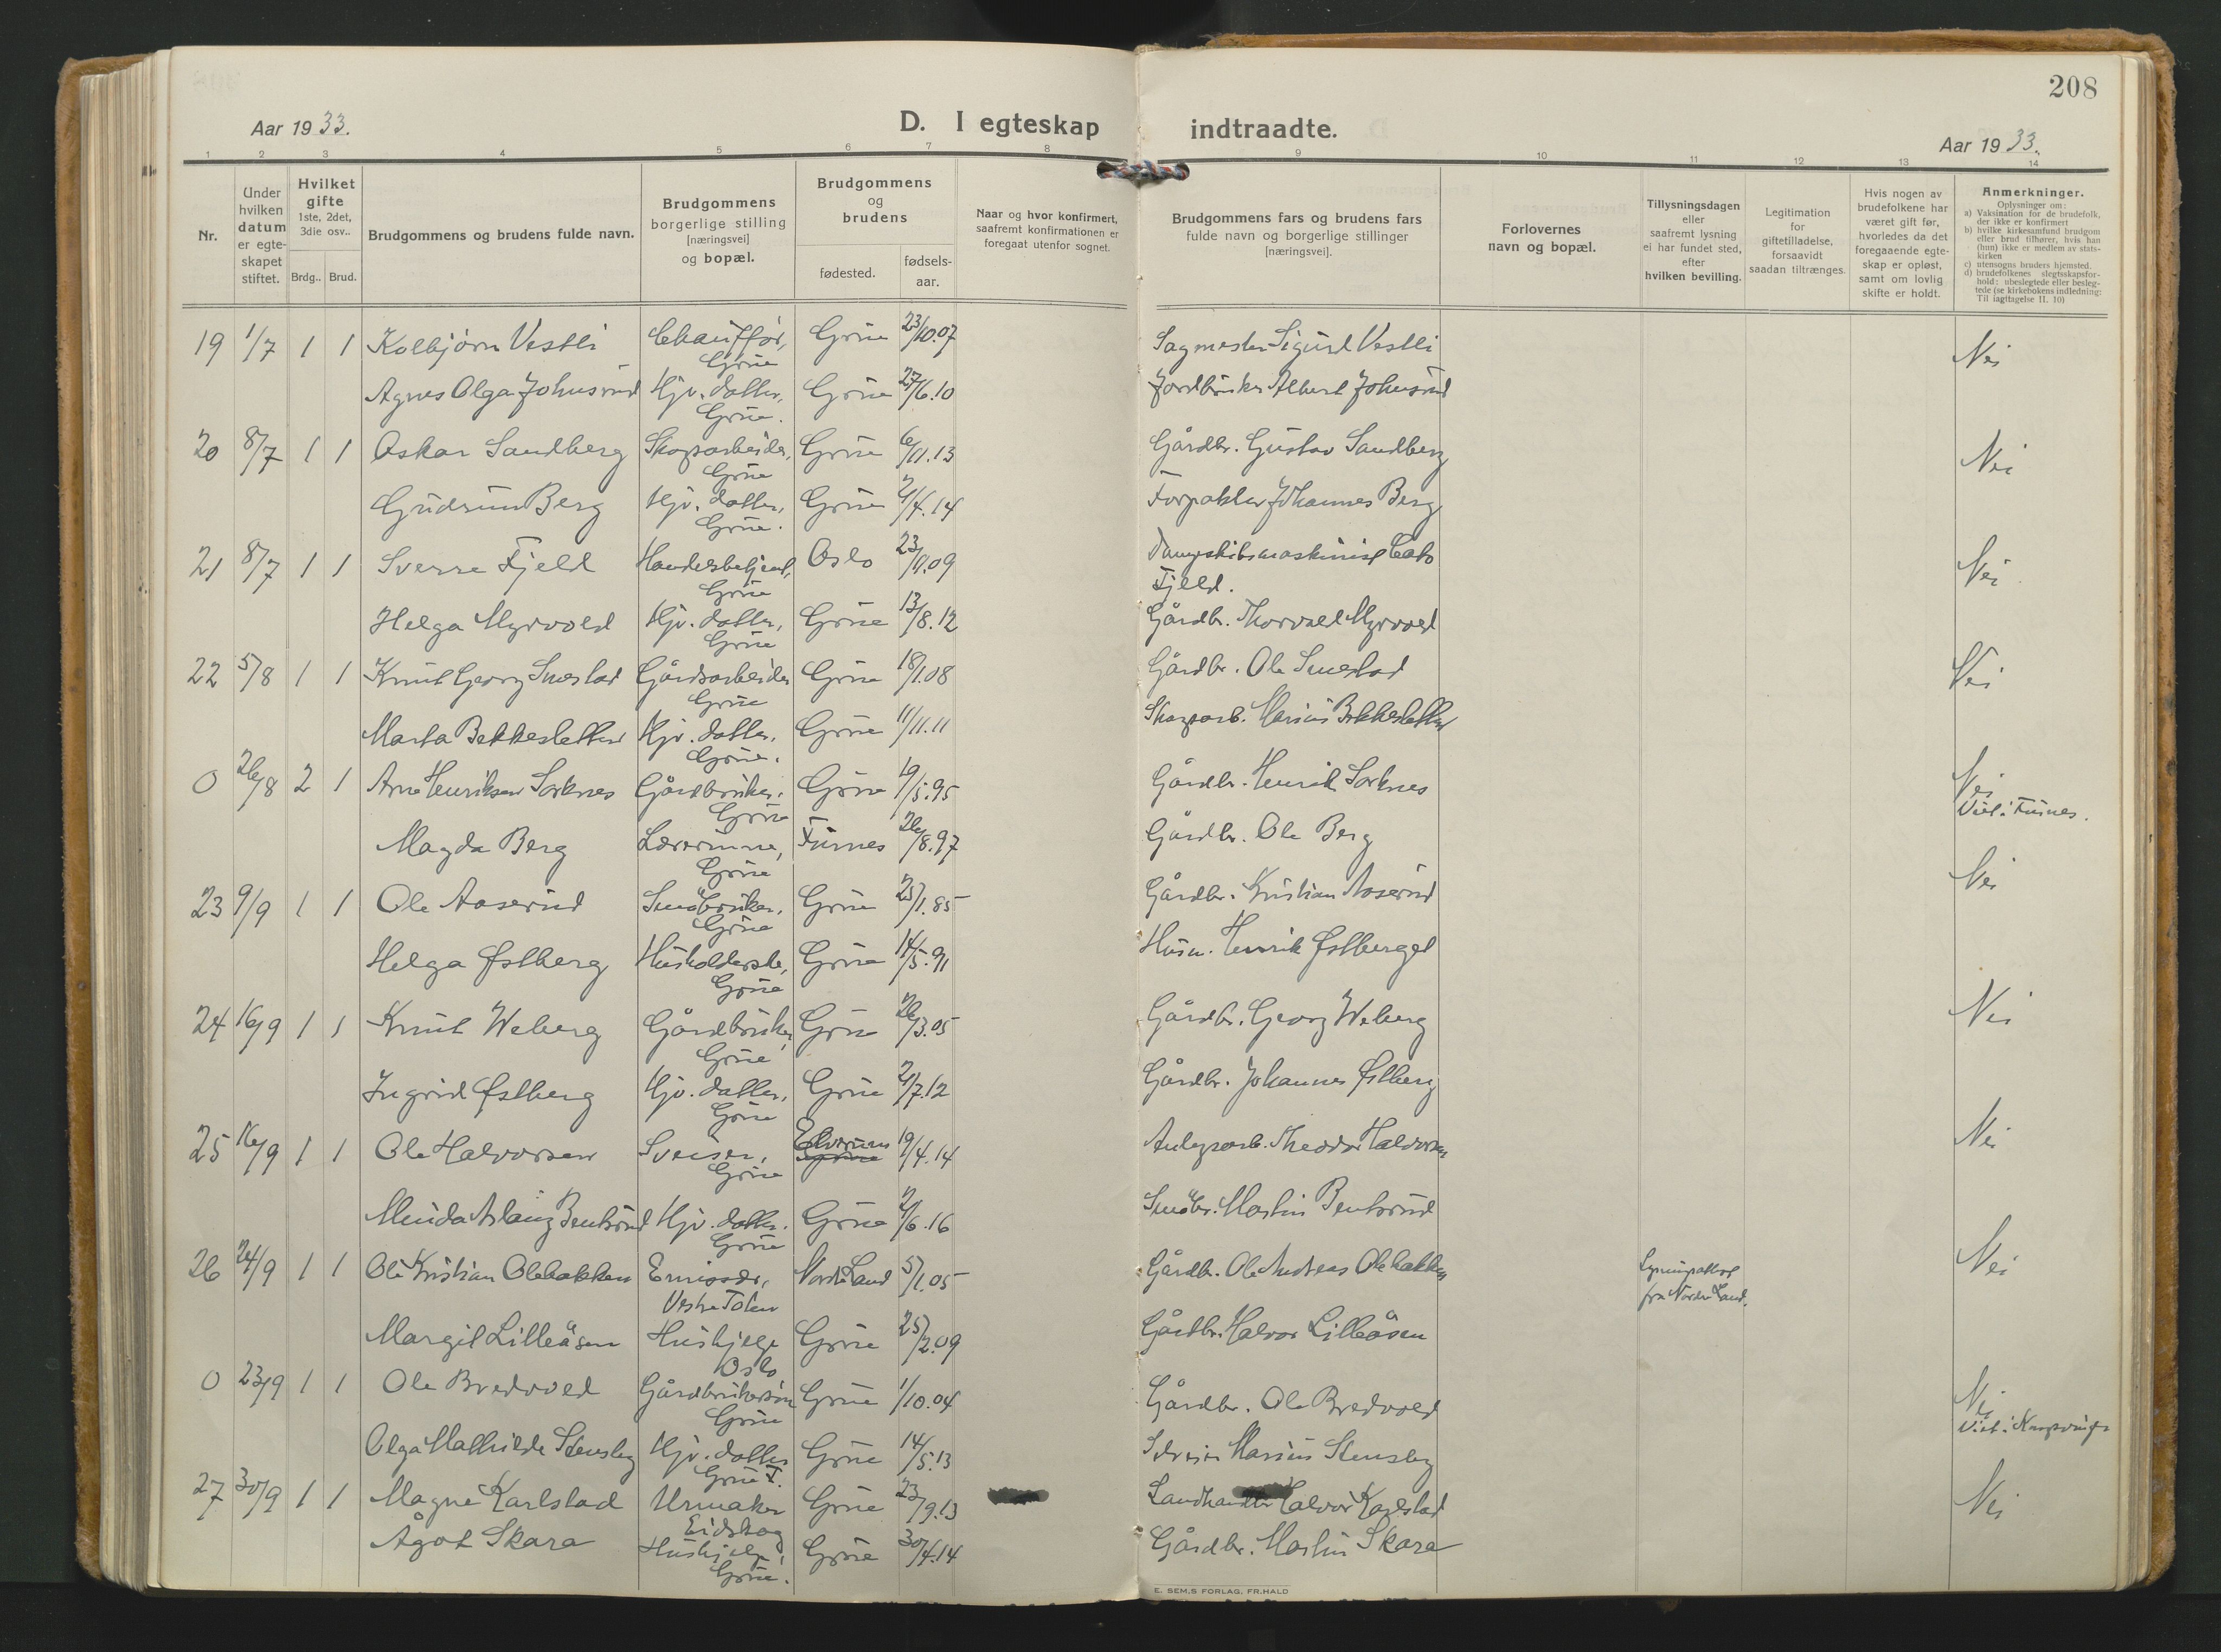 208
Aar 1933.
D. I egteskap indtraadte.
Aar 1933.
1 2 3 4 5 6 7 8 9 10 11 12 13 14
Nr.
Under hvilken datum er egte-skapet stiftet.
Hvilket gifte 1ste, 2det, 3die osv..
Brdg.. Brud.
Brudgommens og brudens fulde navn.
Brudgommens borgerlige stilling [næringsvei] og bopæl.
Brudgommens og brudens
fødested.
fødsels-aar.
Naar og hvor konfirmert, saafremt konfirmationen er foregaat utenfor sognet.
Brudgommens fars og brudens fars fulde navn og borgerlige stillinger [næringsvei].
Forlovernes navn og bopæl.
Tillysningsdagen eller saafremt lysning ei har fundet sted, efter hvilken bevilling.
Legitimation for giftetilladelse, forsaavidt saadan tiltrænges.
Hvis nogen av brudefolkene har været gift før, hvorledes da det foregaaende egte-skap er opløst, samt om lovlig skifte er holdt.
Anmerkninger.
Oplysninger om:
a) Vaksination for de brudefolk, der ikke er konfirmert
b) hvilke kirkesamfund brudgom eller brud tilhører, hvis han (hun) ikke er medlem av stats-kirken
c) utensogns bruders hjemsted.
d) brudefolkenes slegtsskapsfor-hold: ubeslegtede eller besleg-tede (se kirkebokens indledning: Til iagttagelse II. 10)
19 1/7 1 1 Kolbjørn Vestli Chauffør, Grue Grue 23/10.07 Sagmester Sigurd Vestli Nei
Agnes Olga Johnsrud Hjv. datter, Grue. Grue 27/6.10 Jordbruker Albert Johnsrud
20 8/7 1 1 Oskar Sandberg Skogsarbeider, Grue Grue 6/11.13 Gårdbr. Gustav Sandberg Nei
Gudrun Berg Hjv. datter, Grue. Grue 2/4.14 Forpakter Johannes Berg
21 8/7 1 1 Sverre Fjeld Handelsbetjent, Grue Oslo 23/9.09 Dampskibsmaskinist Cato Fjeld. Nei
Helga Myrvold Hjv. datter, Grue Grue 13/8.12 Gårdbr. Thorvald Myrvold
22 5/8 1 1 Knut Georg Smestad Gårdsarbeider Grue Grue 18/1.08 Gårdbr. Ole Smestad Nei
Marta Bekkesletten Hjv. datter. Grue. Grue 11/11.11 Skogsarb. Marius Bekkesletten
0 26/8 2 1 Arne Henriksen Sorknes Gårdbruker. Grue Grue 19/5.95 Gårdbr. Henrik Sorknes Nei Viet i Furnes.
Magda Berg Lærerinne, Grue Furnes 26/8.97 Gårdbr. Ole Berg
23 9/9 1 1 Ole Aaserud Småbruker, Grue Grue 25/1.85 Gårdbr. Kristian Aaserud Nei
Helga Østberg Husholderske, Grue Grue 14/5.91 Husm. Henrik Østberget
24 16/9 1 1 Knut Weberg Gårdbruker, Grue Grue 26/3.05 Gårdbr. Georg Weberg Nei
Ingrid Østberg Hjv. datter, Grue Grue 2/7.12 Gårdbr. Johannes Østberg
25 16/9 1 1 Ole Halvorsen Sveiser, Grue Elverum Grue 19/4.14 Anlegsarb. Theodor Halvorsen Nei
Minda Aslaug Bentsrud Hjv. datter. Grue Grue 2/6.16 Småbr. Martin Bentsrud
26 24/9 1 1 Ole Kristian Olebakken Emissær, Vestre Toten Nordre Land 5/1.05 Gårdbr. Ole Andreas Olebakken Lysningsattest fra Nordre Land. Nei
Margit Lilleåsen Hushjelp Oslo Grue 25/2.09 Gårdbr. Halvor Lilleåsen
0 23/9 1 1 Ole Bredvold Gårdbrukersøn Grue Grue 1/10.04 Gårdbr. Ole Bredvold Nei Viet i Kongsvinger
Olga Mathilde Stensby Hjv. datter Grue F. Grue 14/5.13 Sveiser Marius Stensby
27 30/9 1 1 Magne Karlstad Urmaker Eidskog Grue 23/9.13 Landhandler Halvor Karlstad Nei
Ågot Skara Hushjelp, Grue. Grue 30/4.14 Gårdbr. Martin Skara
E. SEM,S FORLAG, FR.HALD